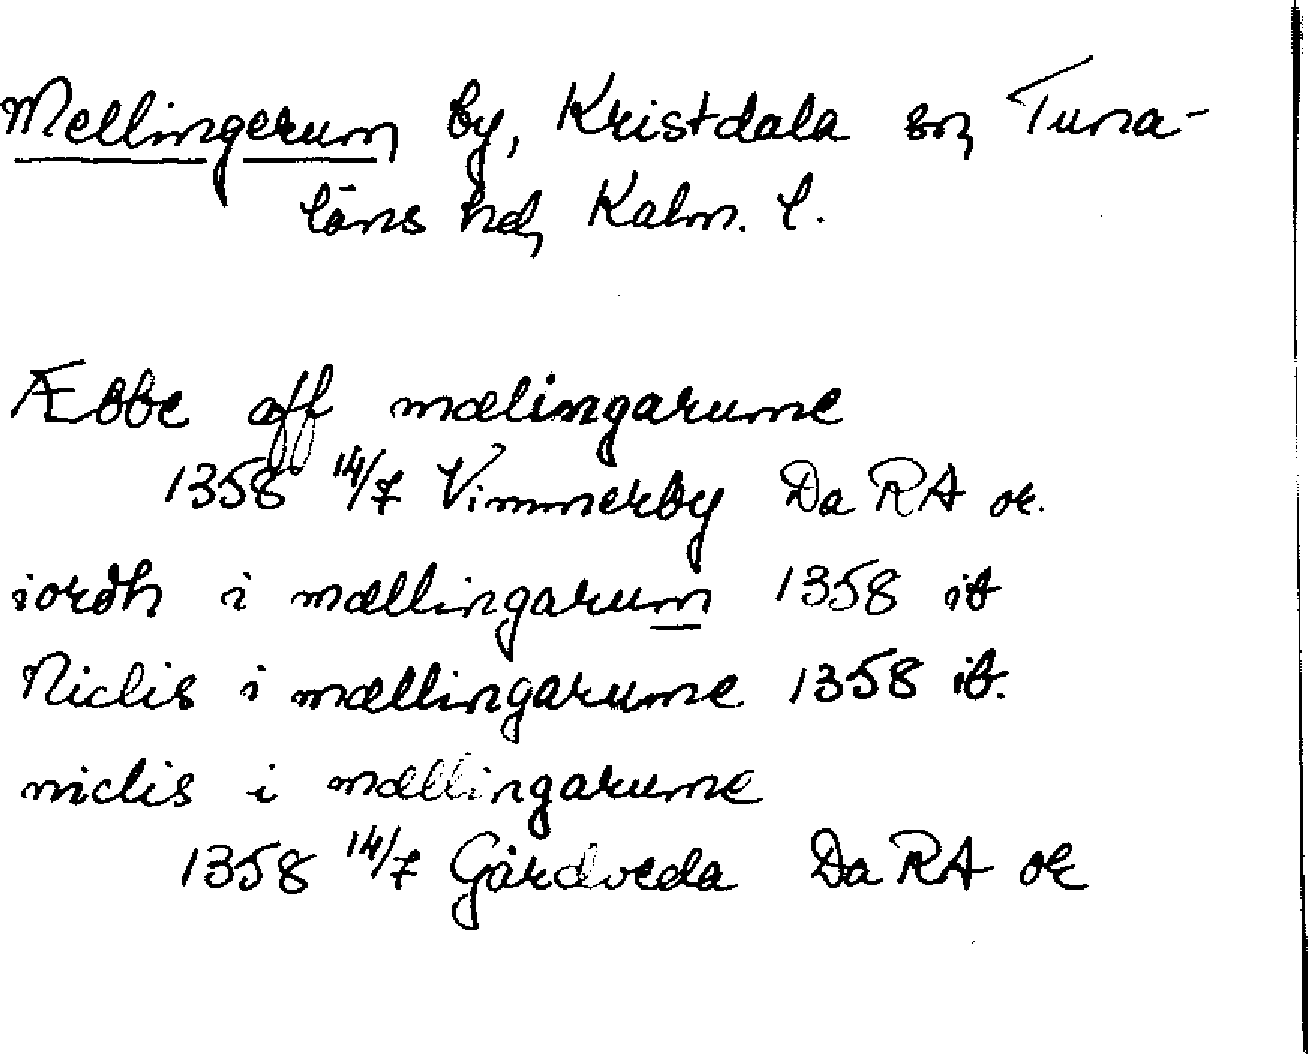 Mellingerum by, Kristdala sn, Tuna-
läns hd, Kalm. l.
Æbbe aff mælingarume
1358 14/7 Vimmerby Da RA or.
iordh i mællingarum 1358 ib
Niclis i mællingarume 1358 ib.
niclis i mællingarume
1358 14/7 Gårdveda Da RA or